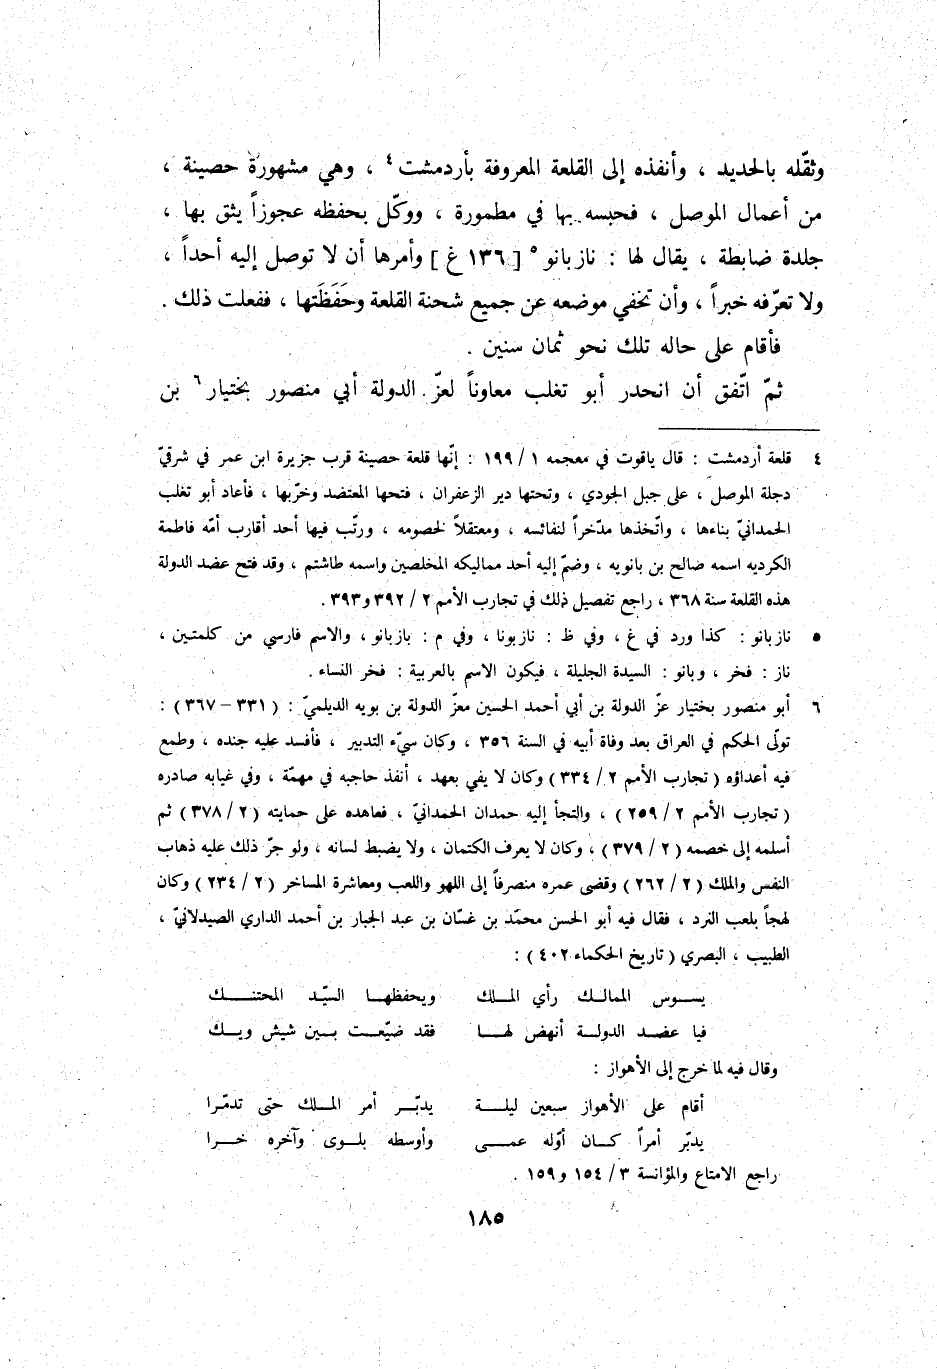 وثقّله بالحديد ، وأنفذه إلى القلعة المعروفة بأردمشت ٤ ، وهي مشهورة حصينة ،
من أعمال الموصل ، فحبسه بها في مطمورة ، ووكّل بحفظه عجوزاً يثق بها ،
جلدة ضابطة ، يقال لها : نازبانو ٥ [ ١٣٦ غ ] وأمرها أن لا توصل إليه أحداً ،
ولا تعرّفه خبراً ، وأن تخفي موضعه عن جميع شحنة القلعة وحَفَظَتها ، ففعلت ذلك .
فأقام على حاله تلك نحو ثمان سنين .
ثمّ اتّفق أن انحدر أبو تغلب معاوناً لعزّ الدولة أبي منصور بختيار ٦ بن
٤ قلعة أردمشت : قال ياقوت في معجمه ١ / ١٩٩ : إنّها قلعة حصينة قرب جزيرة ابن عمر في شرقيّ
دجلة الموصل ، على جبل الجودي ، وتحتها دير الزعفران ، فتحها المعتضد وخرّبها ، فأعاد أبو تغلب
الحمدانيّ بناءها ، واتّخذها مدّخراً لنفائسه ، ومعتقلاً لخصومه ، ورتّب فيها أحد أقارب أمّه فاطمة
الكرديه اسمه صالح بن بانويه ، وضمّ إليه أحد مماليكه المخلصين واسمه طاشتم ، وقد فتح عضد الدولة
هذه القلعة سنة ٣٦٨ ، راجع تفصيل ذلك في تجارب الأمم ٢ / ٣٩٢ و٣٩٣ .
٥ نازبانو : كذا ورد في غ ، وفي ظ : نازبونا ، وفي م : بازبانو ، والاسم فارسي من كلمتين ،
ناز : فخر ، وبانو : السيدة الجليلة ، فيكون الاسم بالعربية : فخر النساء .
٦ أبو منصور بختيار عزّ الدولة بن أبي أحمد الحسين معزّ الدولة بن بويه الديلميّ : ( ٣٣١ – ٣٦٧ ) :
تولّى الحكم في العراق بعد وفاة أبيه في السنة ٣٥٦ ، وكان سيّء التدبير ، فأفسد عليه جنده ، وطمع
فيه أعداؤه ( تجارب الأمم ٢ / ٣٣٤ ) وكان لا يفي بعهد ، أنفذ حاجبه في مهمّة ، وفي غيابه صادره
( تجارب الأمم ٢ / ٢٥٩ ) ، والتجأ إليه حمدان الحمدانيّ ، فعاهده على حمايته ( ٢ / ٣٧٨ ) ثم
أسلمه إلى خصمه ( ٢ / ٣٧٩ ) ، وكان لا يعرف الكتمان ، ولا يضبط لسانه ، ولو جرّ ذلك عليه ذهاب
النفس والملك ( ٢ / ٢٦٢ ) وقضى عمره منصرفاً إلى اللهو واللعب ومعاشرة المساخر ( ٢ / ٢٣٤ ) وكان
لهجاً بلعب النرد ، فقال فيه أبو الحسن محمّد بن غسّان بن عبد الجبار بن أحمد الداري الصيدلانيّ ،
الطبيب ، البصري ( تاريخ الحكماء ٤٠٢ ) :
يسوس الممالك رأي الملك ويحفظها السيّد المحتنك
فيا عضد الدولة أنهض لها فقد ضيّعت بين شيش ويك
وقال فيه لما خرج إلى الأهواز :
أقام على الأهواز سبعين ليلة يدبّر أمر الملك حتى تدمّرا
يدبّر أمراً كان أوّله عمى وأوسطه بلوى وآخره خرا
راجع الامتاع والمؤانسة ٣ / ١٥٤ و١٥٩ .
١٨٥